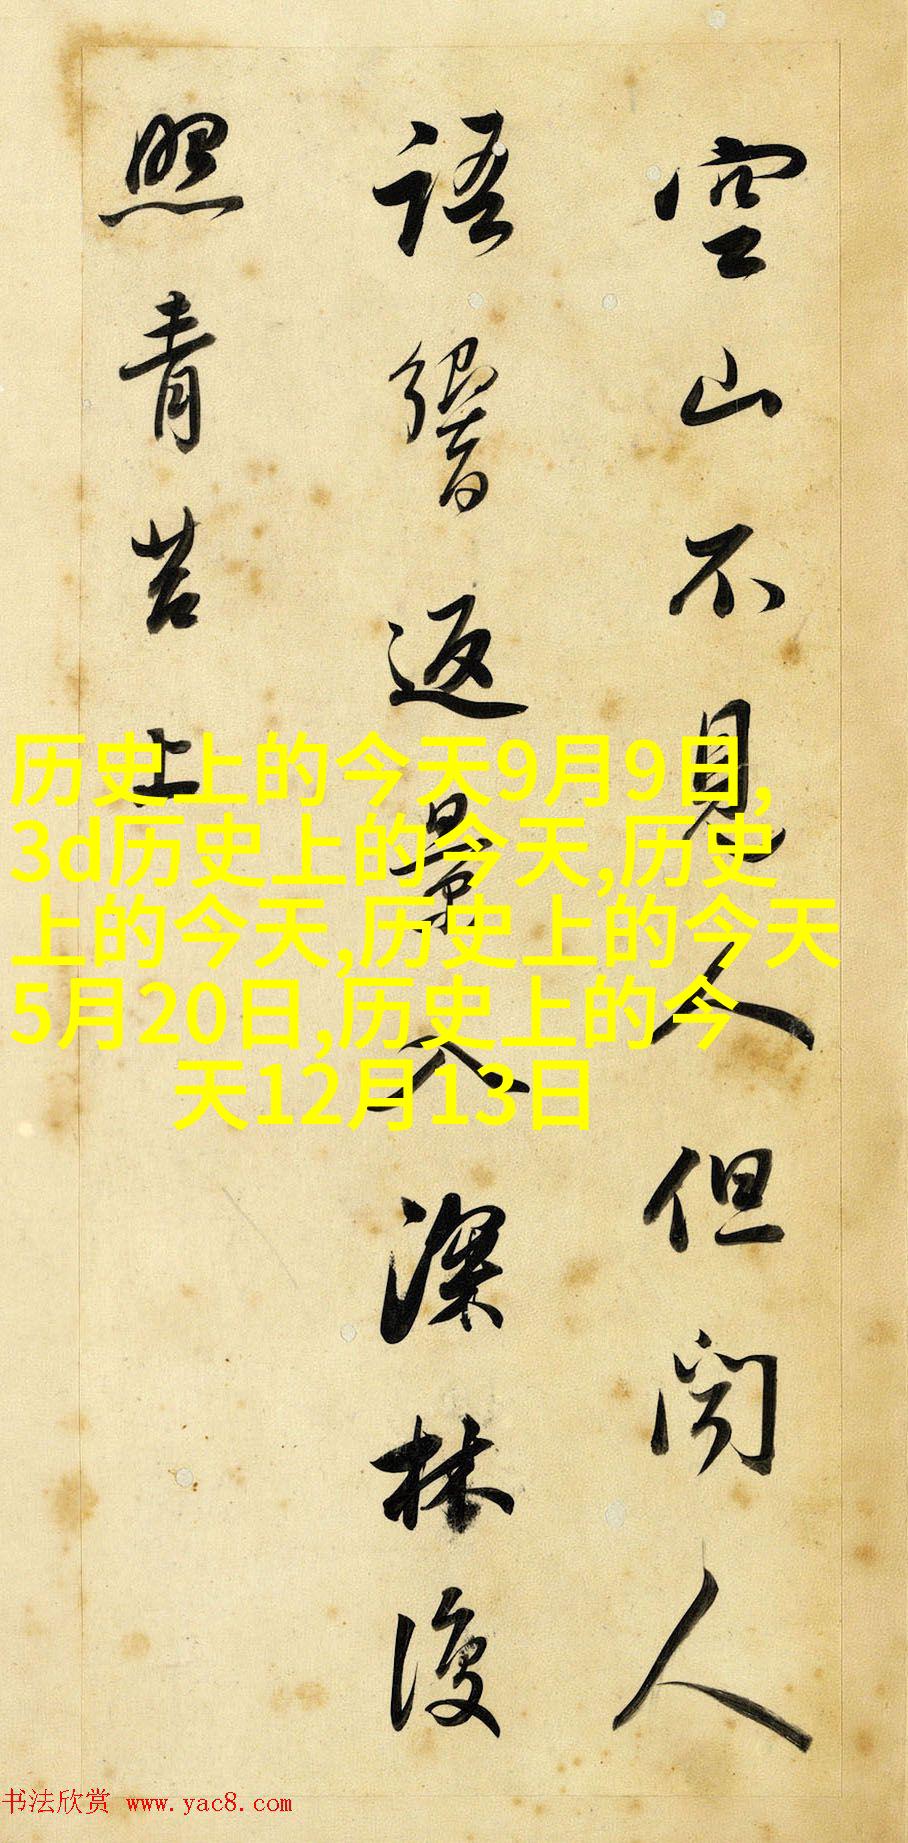 空山不見人但聞人
語響返景入深林復
照青苔上
历史上的今天9月9日,
3d历史上的今天,历史
上的今天,历史上的今天
5月20日,历史上的今
天12月13日
书法欣赏 www.yac8.com